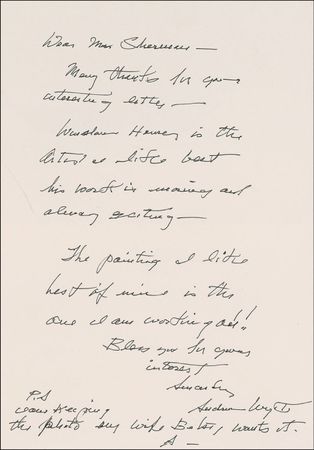 Dear Mrs Sherman —
Many thanks for your
interesting letter —
Winslow Homer is the
Artist I like best
his work is moving and
always exciting —
The painting I like
best of mine is the
one I am working on!!
Bless you for your
interest
Sincerely
Andrew Wyeth
P.S
I am keeping
the photo my wife Betsy wants it.
A —